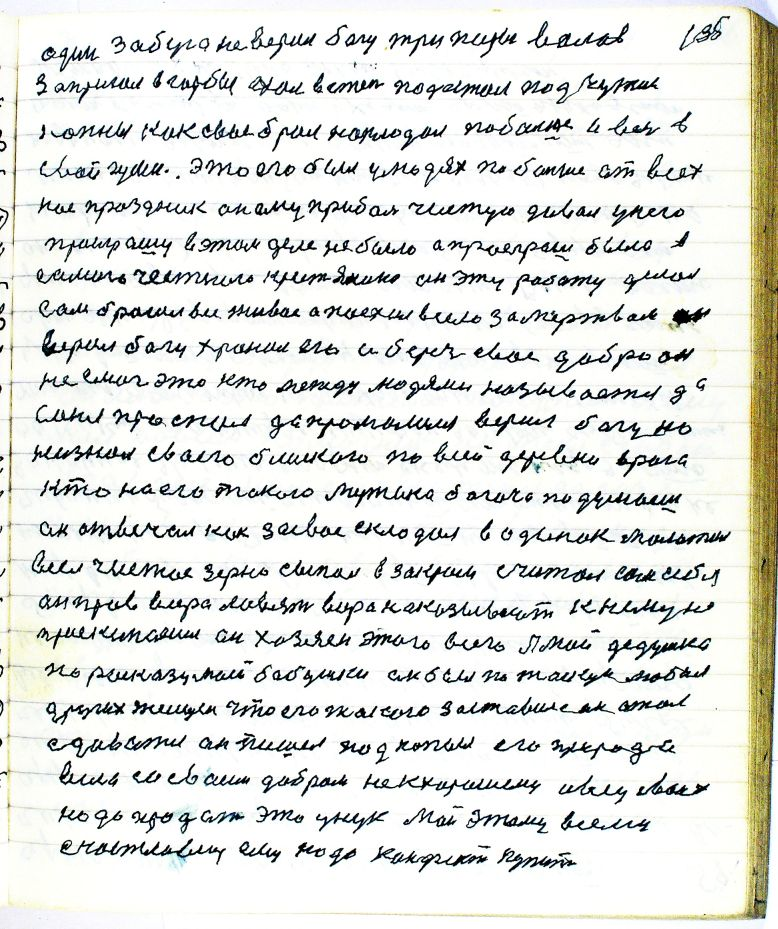 135
один забуга не верил богу три пары валов
запрягал в гарбы ехал в степ подъетал под чужие
копны как свае брал накладал побалше и вез в
свой гумн. это его были у людях по болше от всех
ное праздник он ему прибал чистую давал у него
проиграшу в этом деле не было а проеграш было в
самого честного крестянина он эту работу делал
сам бросал все живое а поехал всело за мертвам он
верил богу хранил его и берег свае добро он
не смог это кто между людями называется да
соня проспал да промамил верил богу но
незнал своего блиского по всей деревни врага
кто на его такого мужика богача подумаеш
он отвечал как за свае складал в одынок молотил
веел чистое зерно сыпал в закром считал сам себя
он прав вора ловят вора наказывают к нему не
прискипались он хозяен этого всего я мой дедушка
по рассказу моей бабушки он был по таму любил
других женщен что его жалкого заставило он стал
сдаватся он пишел под копыл его природа
вела со своим добром не к хорошему овец своех
надо продат это унук мой этому всему
счастлавлу ему надо канфект купит